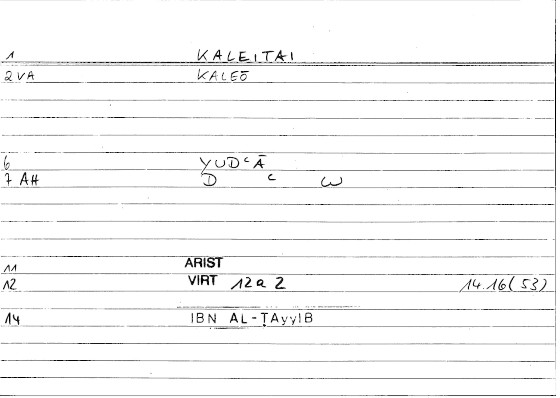 1 KALEITAI
2 VA KALEŌ
6 YUDʿĀ
7 AH D ʿ W
11 ARIST
12 VIRT 12a2 14.16(53)
14 IBN AL-ṬAyyIB